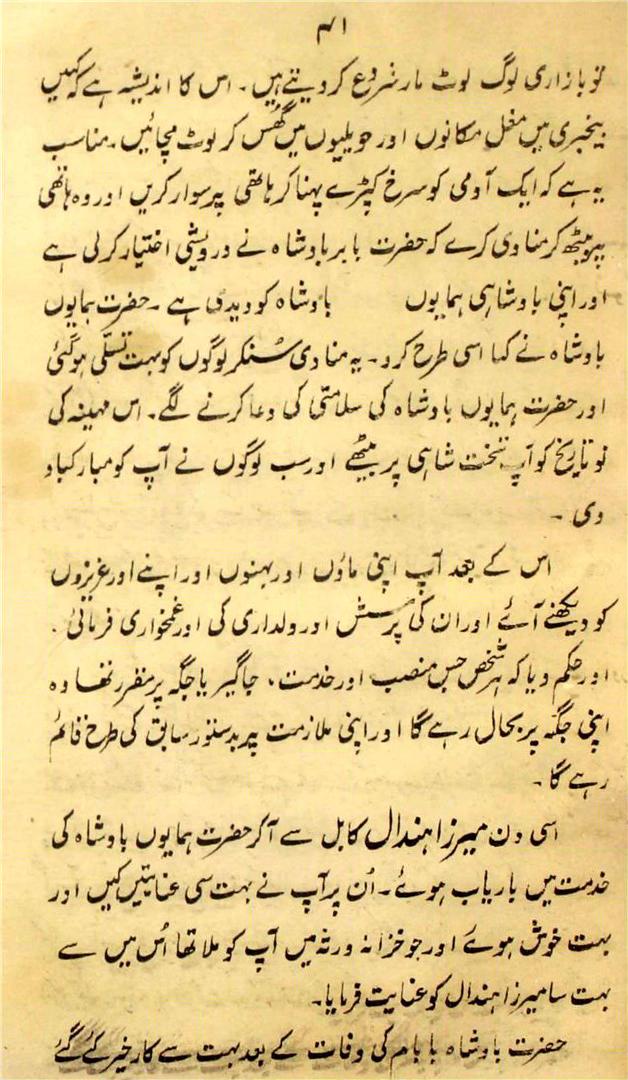 ۴۱
تو بازاری لوگ لوٹ مار شروع کر دیتے ہیں۔ اس کا اندیشہ ہے کہ کہیں
بیخبری میں مغل مکانوں اور حویلیوں میں گھس کر لوٹ مچائیں۔ مناسب
یہ ہے کہ ایک آدمی کو سرخ کپڑے پہنا کر ہاتھی پر سوار کریں اور وہ ہاتھی
پر بیٹھ کر منادی کرے کہ حضرت بابر بادشاہ نے درویشی اختیار کر لی ہے
اور اپنی بادشاہی ہمایوں بادشاہ کو دیدی ہے۔ حضرت ہمایوں
بادشاہ نے کہا اسی طرح کرو۔ یہ منادی سُنکر لوگوں کو بہت تسلّی ہو گئی
اور حضرت ہمایوں بادشاہ کی سلامتی کی دعا کرنے لگے۔ اس مہینہ کی
نو تاریخ کو آپ تخت شاہی پر بیٹھے اور سب لوگوں نے آپ کو مبارکباد
دی۔
اس کے بعد آپ اپنی ماؤں اور بہنوں اور اپنے اور عزیزوں
کو دیکھنے آئے اور ان کی پُرسش اور دلداری کی اور غمخواری فرمائی۔
اور حکم دیا کہ ہر شخص جس منصب اور خدمت، جاگیر یا جگہ پر مقرر تھا وہ
اپنی جگہ پر بحال رہے گا اور اپنی ملازمت پر بدستور سابق کی طرح قائم
رہے گا۔
اسی دن میرزا ہندال کابل سے آکر حضرت ہمایوں بادشاہ کی
خدمت میں باریاب ہوئے۔ اُن پر آپ نے بہت سی عنایتیں کیں اور
بہت خوش ہوئے اور جو خزانہ ورثہ میں آپ کو ملا تھا اُس میں سے
بہت سا میرزا ہندال کو عنایت فرمایا۔
حضرت بادشاہ بابام کی وفات کے بعد بہت سے کار خیر کئے گئے